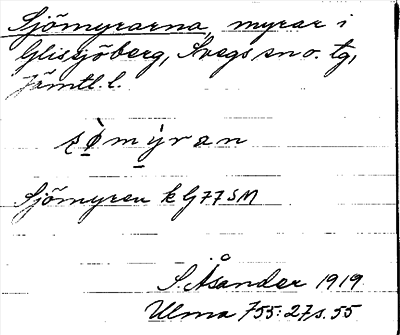 Sjömyrarna, myrar i
Glissjöberg, Svegs sn o. tg,
Jämtl. l.
sø̀mýran
Sjömyren kG77SM
S. Åsander 1919
Ulma 755:27 s. 55